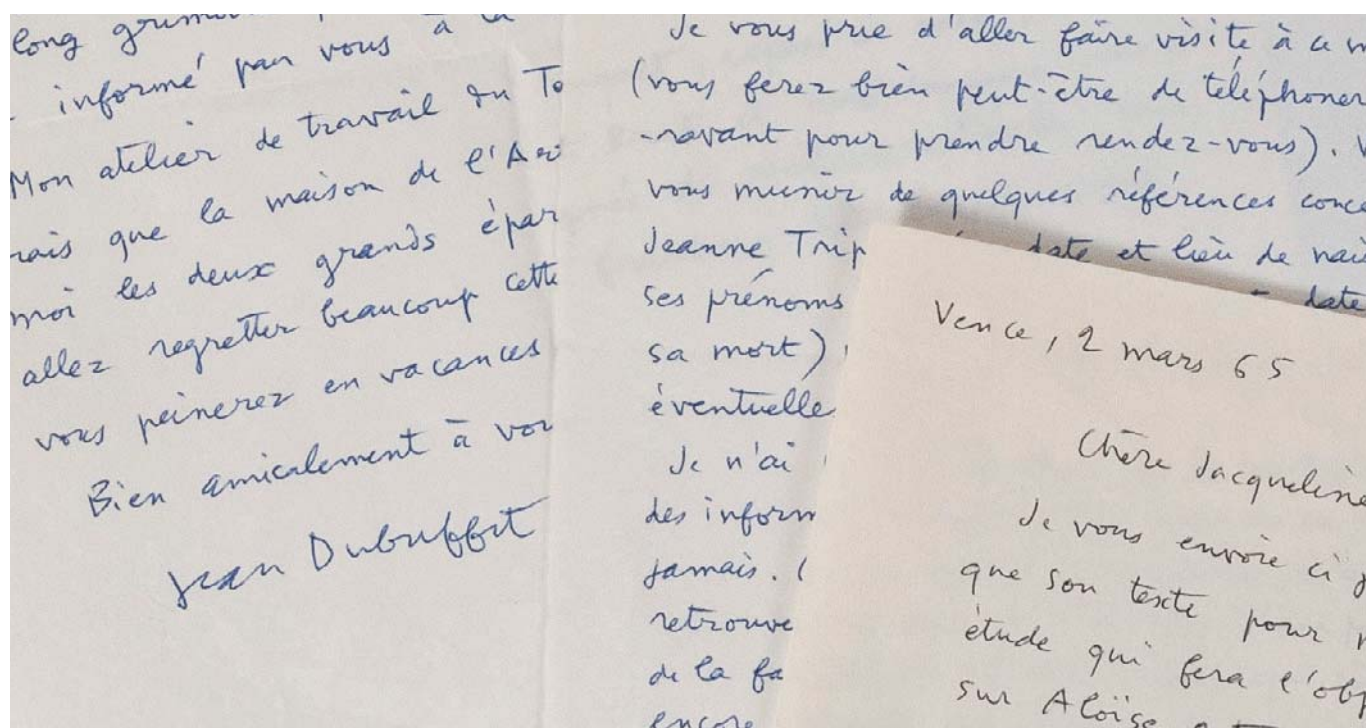 long
informé par vous à la
Mon atelier de travail du To
rais que la maison de l'A
moi les deux grands épar
allez regretter beaucoup cette
vous peinerez en vacances
Bien amicalement à vou
Jean Dubuffet
Je vous prie d'aller faire visite à ce m
(vous ferez bien peut-être de téléphoner
-ravant pour prendre rendez-vous). V
vous munir de quelques références conce
Jeanne Trip date et lieu de nais
ses prénoms date
sa mort)
éventuelle
Je n'ai
des inform
jamais. (
retrouve
de la fa
encore
Vence, 2 mars 65
Chère Jacqueline
Je vous envoie ci j
que son texte pour
étude qui fera l'obj
sur Aloïse